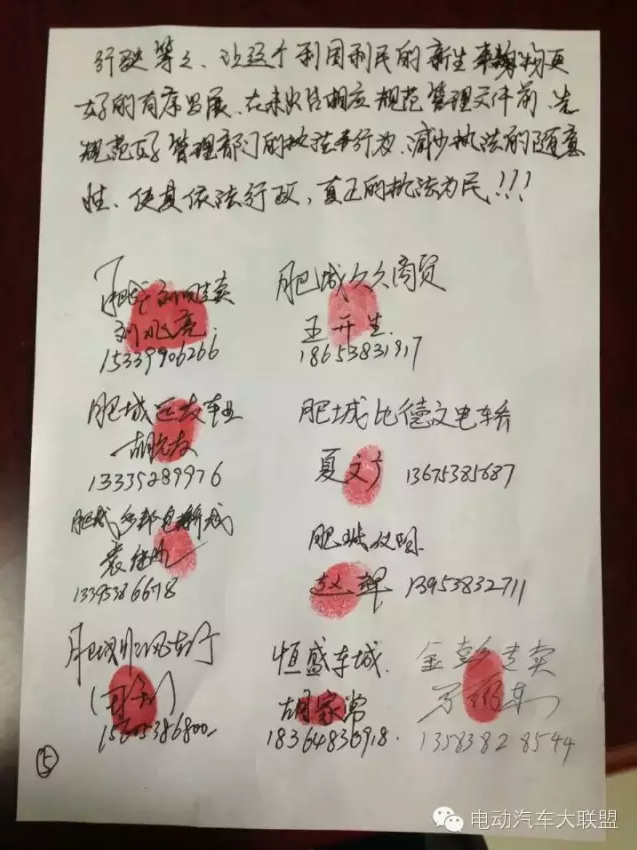 行驶等之、让这个利国利民的新生事物更
好的有序发展、在未出台相应规范管理文件前、先
规范好管理部门的执法行为、减少执法的随意
性、使其依法行政，真正的执法为民！！！
肥城久久商贸
王开生.
15339906266
18653831917
肥城远友车业
肥城比德文电车行
胡
13335289976
夏文广 13675385687
肥城
13395386678
肥城
赵辉 13953832711
肥城 车行
15605386800
恒盛车城.
胡家常
18364836918.
金彭专卖
13583828544
⑤
电动汽车大联盟